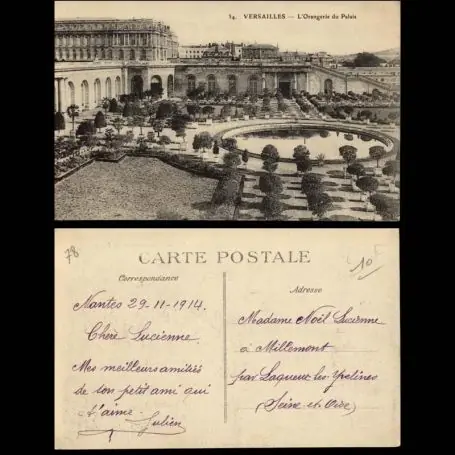 34. VERSAILLES — L'Orangerie du Palais
78
CARTE POSTALE
10
Correspondance
Adresse
Nantes 29-11-1914.
Chère Lucienne.
Mes meilleurs amitiés
de ton petit ami qui
t'aime. Julien
Madame Noël Lucienne
à Millemont
par Laqueux les Yvelines
(Seine-et-Oise)